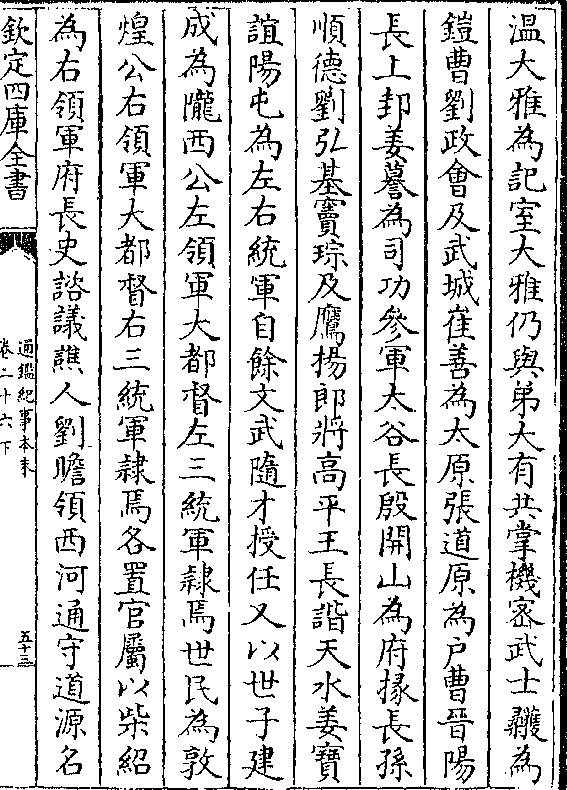 温大雅為記室大雅仍與弟大有共掌機密武士彠為
鎧曹劉政會及武城崔善為太原張道原為戶曹晉陽
長上邽姜謩為司功參軍太谷長殷開山為府掾長孫
順德劉弘基竇琮及鷹揚郎將高平王長諧天水姜寶
誼陽屯為左右統軍自餘文武隨才授任又以世子建
成為隴西公左領軍大都督左三統軍隷焉世民為敦
煌公右領軍大都督右三統軍隷焉各置官屬以柴紹
為右領軍府長史諮議譙人劉瞻領西河通守道源名
欽定四庫全書
通鑑紀事本末
卷二十六下
五十三